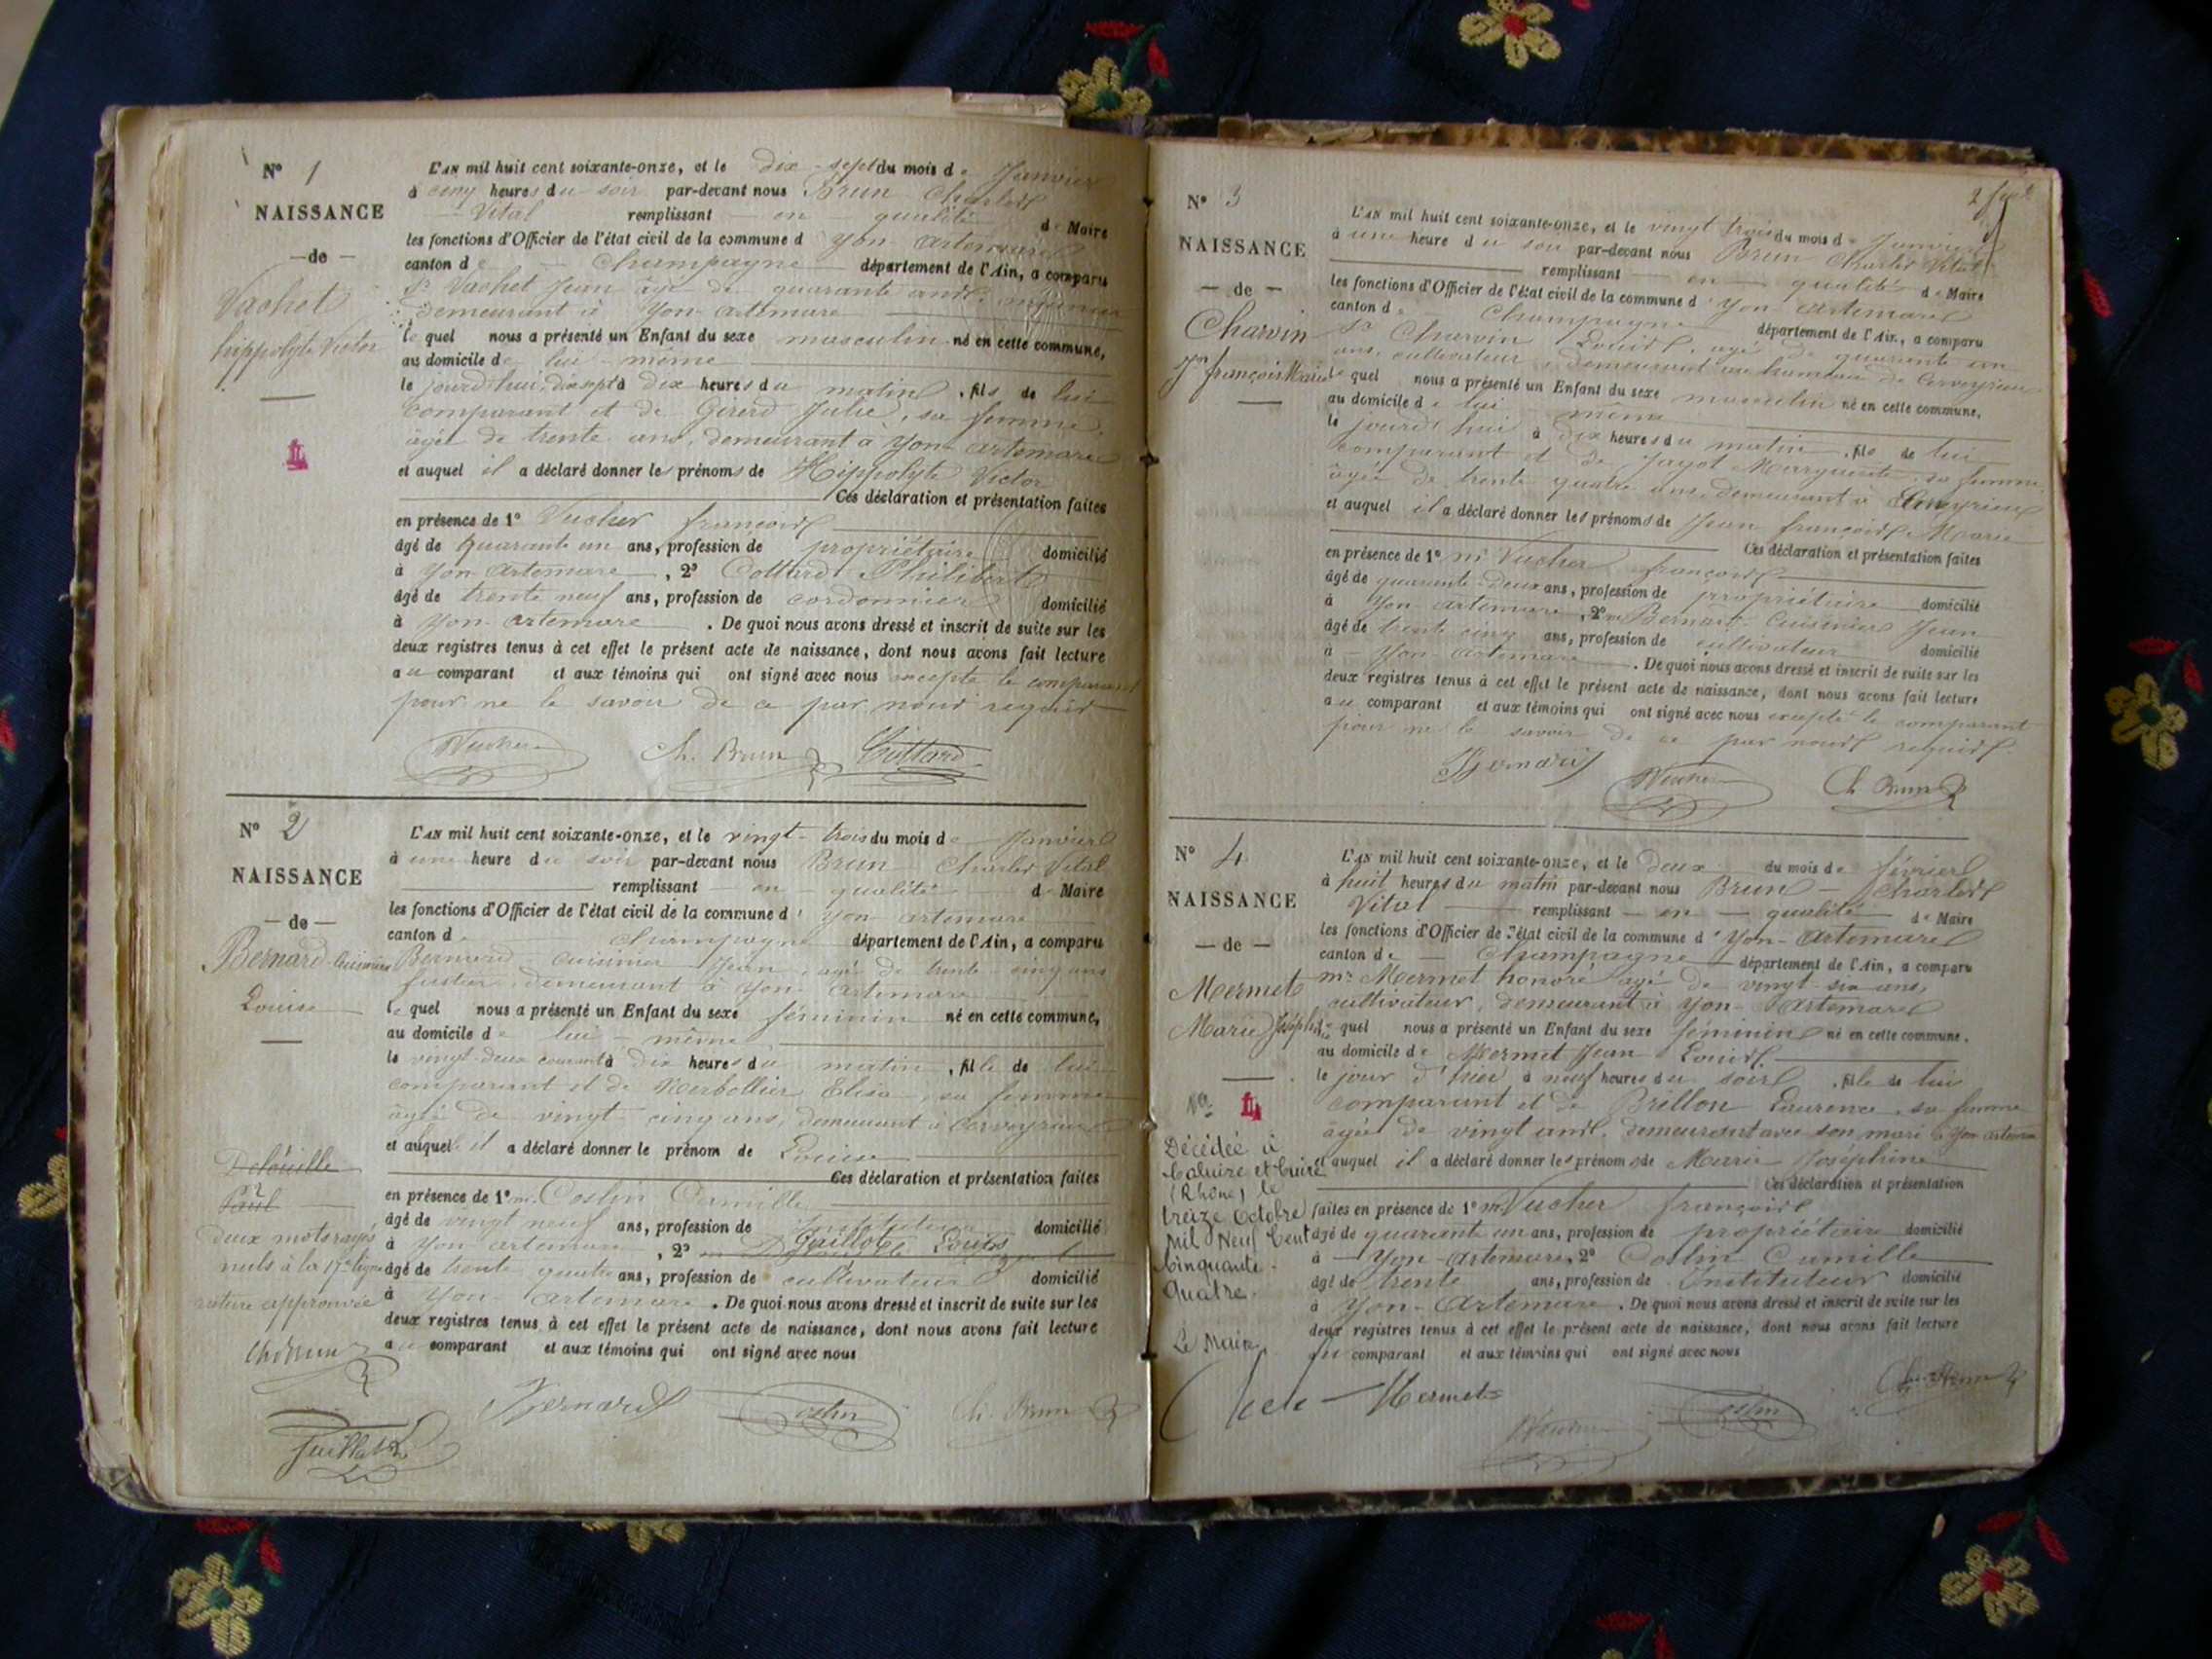 N° 1
NAISSANCE
— de —
Vachet
hippolyte Victor
L'AN mil huit cent soixante-onze, et le dix-sept du mois de Janvier
à cinq heures du soir par-devant nous Brun Charles
Vital remplissant en qualité de Maire
les fonctions d'Officier de l'état civil de la commune d'Yon-Artemare
canton de Champagne département de l'Ain, a comparu
Sr Vachet Jean âgé de quarante ans,
demeurant à Yon-Artemare
le quel nous a présenté un Enfant du sexe masculin né en cette commune,
au domicile de lui-même
le jourd'hui, dix sept à dix heures du matin, fils de lui
comparant et de Girerd Julie, sa femme,
âgée de trente ans, demeurant à Yon-Artemare
et auquel il a déclaré donner les prénoms de Hippolyte Victor
Ces déclaration et présentation faites
en présence de 1° Vucher françois
âgé de quarante un ans, profession de propriétaire domicilié
à Yon-Artemare, 2° Cottard Philibert
âgé de trente neuf ans, profession de cordonnier domicilié
à Yon-Artemare. De quoi nous avons dressé et inscrit de suite sur les
deux registres tenus à cet effet le présent acte de naissance, dont nous avons fait lecture
au comparant et aux témoins qui ont signé avec nous excepté le comparant
pour ne le savoir de ce par nous requis
Vucher Ch. Brun Cottard
N° 2
NAISSANCE
— de —
Bernard-Cuisinier
Louise
L'AN mil huit cent soixante-onze, et le vingt-trois du mois de Janvier
à une heure du soir par-devant nous Brun Charles Vital
remplissant en qualité de Maire
les fonctions d'Officier de l'état civil de la commune d'Yon-Artemare
canton de Champagne département de l'Ain, a comparu
Bernard-Cuisinier Jean, âgé de trente-cinq ans
fustier, demeurant à Yon-Artemare
le quel nous a présenté un Enfant du sexe féminin né en cette commune,
au domicile de lui-même
le vingt-deux courant à dix heures du matin, fille de lui
comparant et de Elisa, sa femme
âgée de vingt-cinq ans, demeurant à Cerveyrieu
et auquel il a déclaré donner le prénom de Louise
Ces déclaration et présentation faites
en présence de 1° m. Coslin Camille
âgé de vingt neuf ans, profession de Instituteur domicilié
à Yon-Artemare, 2° Guillot Louis
âgé de trente quatre ans, profession de cultivateur domicilié
à Yon-Artemare. De quoi nous avons dressé et inscrit de suite sur les
deux registres tenus à cet effet le présent acte de naissance, dont nous avons fait lecture
au comparant et aux témoins qui ont signé avec nous
Paul
deux mots rayés
nuls à la 17e ligne
rature approuvée
Ch Brun
Bernard Coslin Ch. Brun
Guillot
2
N° 3
NAISSANCE
— de —
Charvin
Jn françois Marie
L'AN mil huit cent soixante-onze, et le vingt trois du mois de Janvier
à une heure du soir par-devant nous Brun Charles Vital
remplissant en qualité de Maire
les fonctions d'Officier de l'état civil de la commune d'Yon-Artemare
canton de Champagne département de l'Ain, a comparu
Sr Charvin Louis, âgé de quarante un
ans, cultivateur, demeurant au hameau de Cerveyrieu
le quel nous a présenté un Enfant du sexe masculin né en cette commune,
au domicile de lui-même
le jourd'hui à dix heures du matin, fils de lui
comparant et de Jagot Marguerite, sa femme
âgée de trente quatre ans, demeurant à Cerveyrieu
et auquel il a déclaré donner les prénoms de Jean françois Marie
Ces déclaration et présentation faites
en présence de 1° mr Vucher françois
âgé de quarante-deux ans, profession de propriétaire domicilié
à Yon-Artemare, 2° m Bernard Cuisinier Jean
âgé de trente cinq ans, profession de cultivateur domicilié
à Yon-Artemare. De quoi nous avons dressé et inscrit de suite sur les
deux registres tenus à cet effet le présent acte de naissance, dont nous avons fait lecture
au comparant et aux témoins qui ont signé avec nous excepté le comparant
pour ne le savoir de ce par nous requis.
Bernard Vucher Ch. Brun
N° 4
NAISSANCE
— de —
Mermet
Marie Joséphine
L'AN mil huit cent soixante-onze, et le deux du mois de février
à huit heures du matin par-devant nous Brun Charles
Vital remplissant en qualité de Maire
les fonctions d'Officier de l'état civil de la commune d'Yon-Artemare
canton de Champagne département de l'Ain, a comparu
mr Mermet honoré âgé de vingt six ans,
cultivateur, demeurant à Yon-Artemare
le quel nous a présenté un Enfant du sexe féminin né en cette commune.
au domicile de Mermet Jean Louis
le jour d'hier à neuf heures du soir, fille de lui
comparant et de Brillon Laurence, sa femme
âgée de vingt ans, demeurant avec son mari à Yon Artemare
et auquel il a déclaré donner les prénoms de Marie Joséphine
Ces déclaration et présentation
faites en présence de 1° m Vucher françois
âgé de quarante un ans, profession de propriétaire domicilié
à Yon-Artemare, 2° Coslin Camille
âgé de trente ans, profession de Instituteur domicilié
à Yon-Artemare. De quoi nous avons dressé et inscrit de suite sur les
deux registres tenus à cet effet le présent acte de naissance, dont nous avons fait lecture
au comparant et aux témoins qui ont signé avec nous
Décédée à
Caluire et Cuire
(Rhône) le
treize Octobre
Mil Neuf Cent
Cinquante
Quatre.
Le Maire
Mermet Coslin Ch. Brun
Vucher